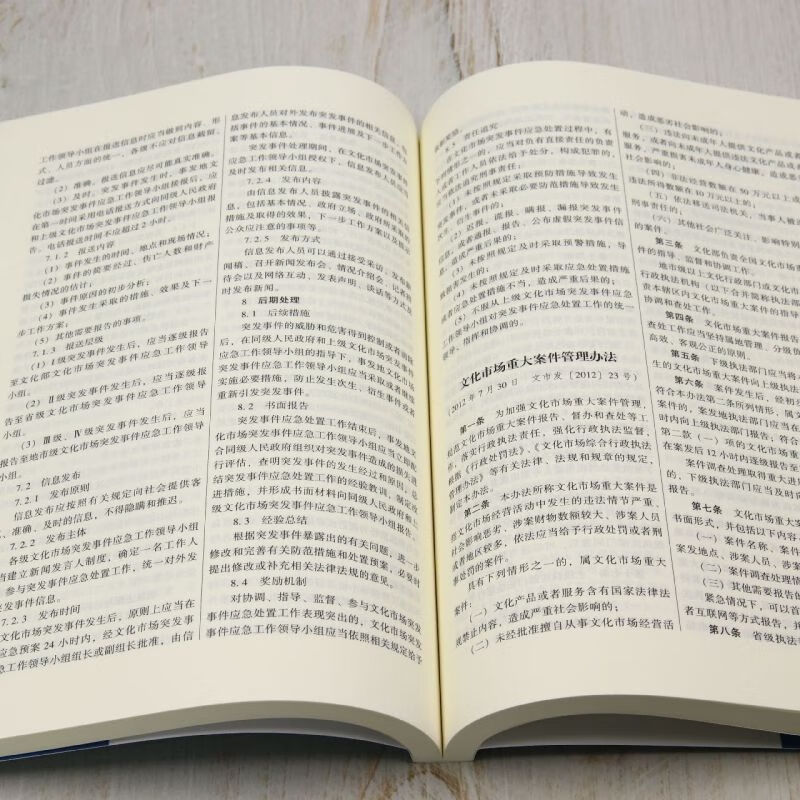 工作领导小组在报送信息时应当做到内容、形
式、人员方面的统一，各级不应对信息截留、
过滤。
（2）准确。报送信息应尽可能真实准确。
（3）及时。突发事件发生时，事发地文
化市场突发事件应急工作领导小组接报后，应
在第一时间采用电话报送方式向同级人民政府
和上级文化市场突发事件应急工作领导小组报
告。电话报送时间不应超过2小时。
7.1.2 报送内容
（1）事件发生的时间、地点和现场情况；
（2）事件的简要经过、伤亡人数和财产
损失情况的估计；
（3）事件原因的初步分析；
（4）事件发生采取的措施、效果及下一
步工作方案；
（5）其他需要报告的事项。
7.1.3 报送层级
（1）Ⅰ级突发事件发生后，应当逐级报告
至文化部文化市场突发事件应急工作领导
小组。
（2）Ⅱ级突发事件发生后，应当逐级报
告至省级文化市场突发事件应急工作领导
小组。
（3）Ⅲ级、Ⅳ级突发事件发生后，应当
报告至地市级文化市场突发事件应急工作领导
小组。
7.2 信息发布
7.2.1 发布原则
信息发布应按照有关规定向社会提供客
、准确、及时的信息，不得隐瞒和推迟。
7.2.2 发布主体
各级文化市场突发事件应急工作领导小组
当建立新闻发言人制度，确定一名工作人
参与突发事件应急处置工作，统一对外发
事件信息。
7.2.3 发布时间
文化市场突发事件发生后，原则上应当在
应急预案24小时内，经文化市场突发事
急工作领导小组组长或副组长批准，由信
息发布人员对外发布突发事件的相关信息，包
括事件的基本情况、事件进展及下一步工作方
案等基本信息。
突发事件处理期间，在文化市场突发事件
应急工作领导小组授权下，信息发布人员应当
及时发布相关信息。
7.2.4 发布内容
由信息发布人员披露突发事件的相关信
息，包括基本情况、政府立场、政府所采取的
措施及取得的效果、下一步工作方案以及提示
公众应注意的事项等。
7.2.5 发布方式
信息发布人员可以通过接受采访、发布新
闻稿、召开新闻发布会、情况介绍会、记者招
待会以及网络互动、发表声明、谈话等方式及
时发布新闻。
8 后期处理
8.1 后续措施
突发事件的威胁和危害得到控制或者消除
后，在同级人民政府和上级文化市场突发事件
应急工作领导小组的指导下，事发地文化市场
突发事件应急工作领导小组应当采取或者继续
实施必要措施，防止发生次生、衍生事件或者
重新引发突发事件。
8.2 书面报告
突发事件应急处置工作结束后，事发地文
化市场突发事件应急工作领导小组应当立即配
合同级人民政府组织对突发事件造成的损失进
行评估，查明突发事件的发生经过和原因，总
结突发事件应急处置工作的经验教训，制定改
进措施，并形成书面材料向同级人民政府和上
级文化市场突发事件应急工作领导小组报告。
8.3 经验总结
根据突发事件暴露出的有关问题，进一步
修改和完善有关防范措施和处置预案，必要时
提出修改或补充相关法律法规的意见。
8.4 奖励机制
对协调、指导、监督、参与文化市场突发
事件应急处置工作表现突出的，文化市场突发
事件应急工作领导小组应当依照相关规定给予
8.5 责任追究
在文化市场突发事件应急处置过程中，有
下列情形之一的，应当对负有直接责任的负责
人或者工作人员依法给予处分，构成犯罪的，
依法追究刑事责任：
（1）未按照规定采取预防措施导致发生
突发事件，或者未采取必要防范措施导致发生
次生、衍生事件的；
（2）迟报、谎报、瞒报、漏报突发事件
信息，或者通报、报告、公布虚假突发事件信
息，造成严重后果的；
（3）未按照规定及时采取预警措施，导
致损害发生的；
（4）未按照规定及时采取应急处置措施
或者应急处置措施不当，造成严重后果的；
（5）不服从上级文化市场突发事件应急
工作领导小组对突发事件应急处置工作的统一
领导、指挥和协调的。
文化市场重大案件管理办法
2012年7月30日 文市发〔2012〕23号）
第一条 为加强文化市场重大案件管理，
规范文化市场重大案件报告、督办和查处等工
作，落实行政执法责任，强化行政执法监督，
根据《行政处罚法》、《文化市场综合行政执法
管理办法》等有关法律、法规和规章的规定，
制定本办法。
第二条 本办法所称文化市场重大案件是
指文化市场经营活动中发生的违法情节严重、
社会影响恶劣、涉案财物数额较大、涉案人员
或者地区较多，依法应当给予行政处罚或者刑
事处罚的案件。
具有下列情形之一的，属文化市场重大
案件：
（一）文化产品或者服务含有国家法律法
规禁止内容，造成严重社会影响的；
（二）未经批准擅自从事文化市场经营活
动，造成恶劣社会影响的；
（三）向未成年人提供文化产品或者
服务，或者向未成年人提供违法文化产品或者
服务，严重损害未成年人身心健康，造成恶
社会影响的；
（四）非法经营数额在50万元以上或
违法所得数额在10万元以上的；
（五）依法移送司法机关，当事人被
刑事责任的；
（六）其他社会广泛关注、影响特别
的案件。
第三条 文化部负责全国文化市场
件的指导、监督和协调工作。
地市级以上文化行政部门或文化市场
行政执法机构（以下合并简称执法部
责本辖区内文化市场重大案件的指导
协调和查处工作。
第四条 文化市场重大案件报告
查处工作应当坚持属地管理、分级负
高效、客观公正的原则。
第五条 下级执法部门应当将
生的文化市场重大案件向上级执法
第六条 案件发生后，经初步
符合本办法第二条所列情形，属
案件的，案发地执法部门应当在
时内向上级执法部门报告，符合
第二款（一）项的文化市场重
在案发后12小时内逐级报告至
案件调查处理取得重大进
的，下级执法部门应当及时向
报告。
第七条 文化市场重大
书面形式，并包括以下内容
（一）案件名称、案件
案发地点、涉案人员、涉案
（二）案件调查处理情
（三）其他需要报告的
紧急情况下，可以首
者互联网等方式报告，并
第八条 省级执法